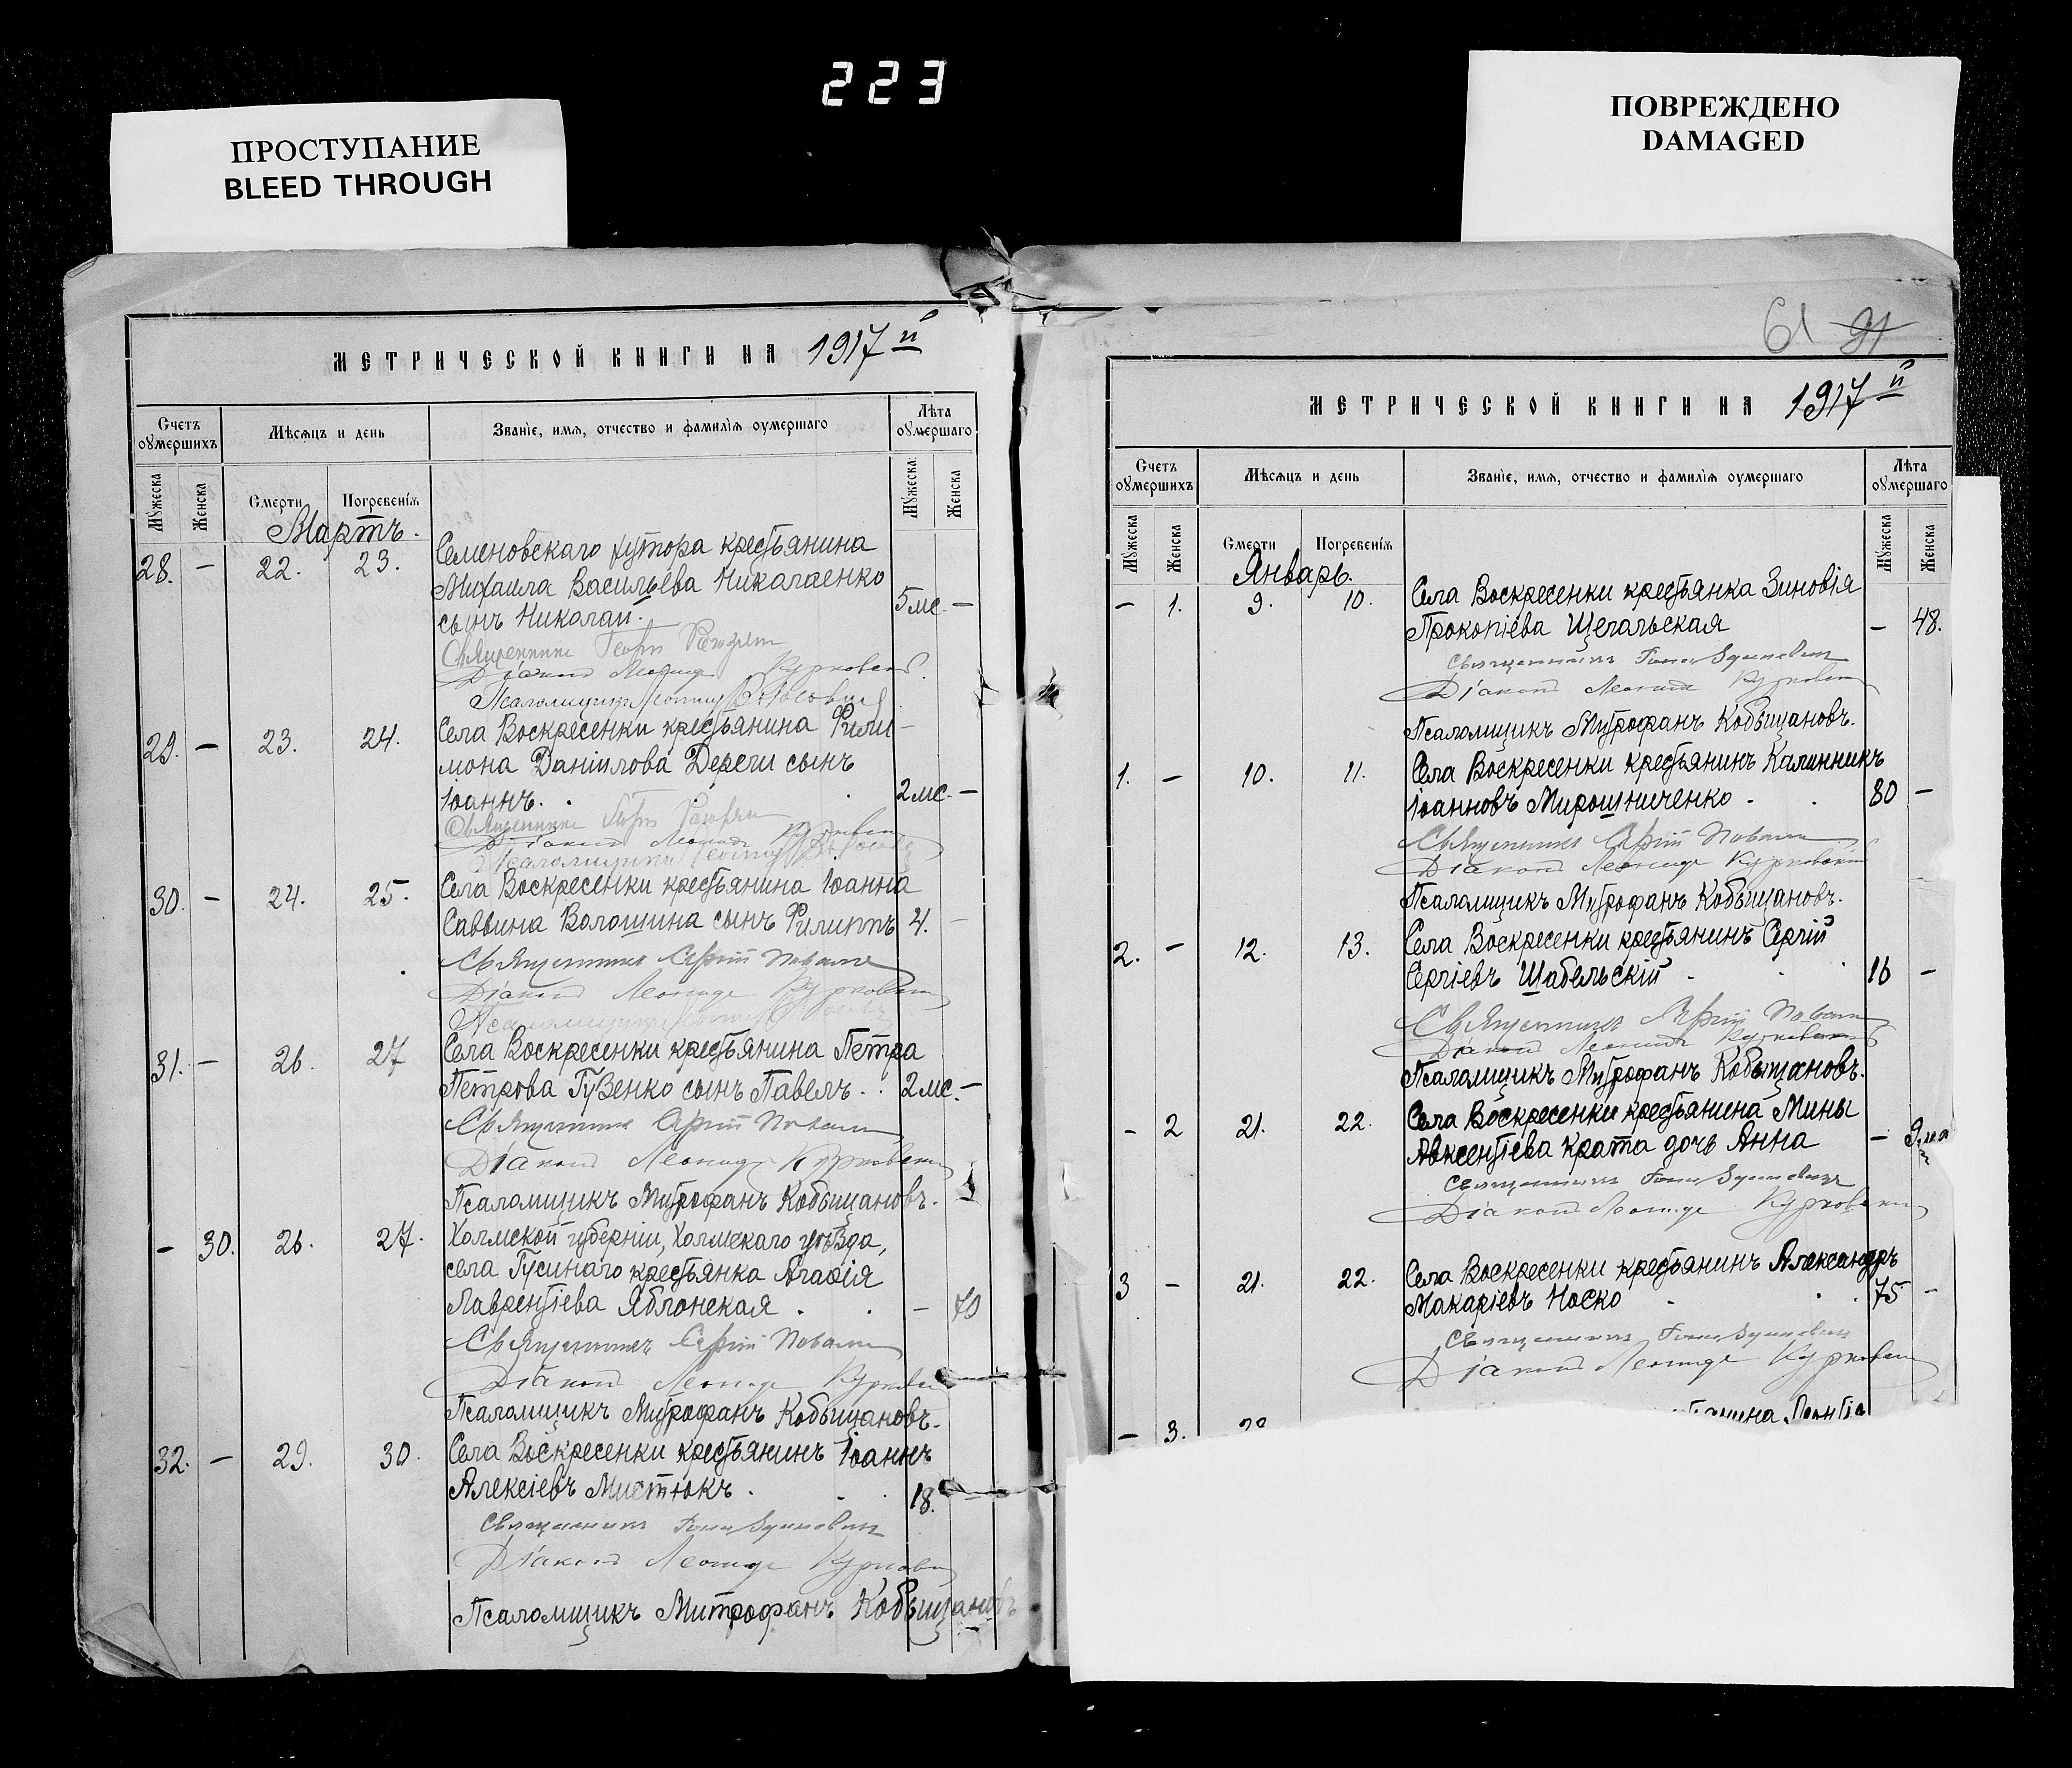 223
ПРОСТУПАНИЕ
BLEED THROUGH
ПОВРЕЖДЕНО
DAMAGED
МЕТРИЧЕСКОЙ КНИГИ НА 1917й
Счетъ оумершихъ
Мѣсяцъ и день
Званіе, имя, отчество и фамилія оумершаго
Лѣта оумершаго
Мужеска
Женска
Смерти
Погребенія
Мужеска
Женска
Мартъ.
28. - 22. 23. Семеновскаго хутора крестьянина
Михаила Васильева Николаенко
сынъ Николай. 5 мс. -
Священникъ
Діаконъ Леонидъ Курковскій
Псаломщикъ
29. - 23. 24. Села Воскресенки крестьянина Фили-
мона Даніилова Дереги сынъ
Іоаннъ. 2 мс. -
Священникъ
Діаконъ Леонидъ Курковскій
Псаломщикъ
30. - 24. 25. Села Воскресенки крестьянина Іоанна
Саввина Волошина сынъ Филиппъ 4. -
Священникъ Сергій
Діаконъ Леонидъ Курковскій
Псаломщикъ
31. - 26. 27 Села Воскресенки крестьянина Петра
Петрова Гузенко сынъ Павелъ. 2 мс. -
Священникъ Сергій
Діаконъ Леонидъ Курковскій
Псаломщикъ Митрофанъ Кобыщановъ.
- 30. 26. 27. Холмской губерніи, Холмскаго уѣзда,
села Гусинаго крестьянка Агафія
Лаврентіева Яблонская. - 70
Священникъ Сергій
Діаконъ Леонидъ Курковскій
Псаломщикъ Митрофанъ Кобыщановъ.
32. - 29. 30. Села Воскресенки крестьянинъ Іоаннъ
Алексіевъ Мистюкъ. 18.
Священникъ
Діаконъ Леонидъ Курковскій
Псаломщикъ Митрофанъ Кобыщановъ
61 91
МЕТРИЧЕСКОЙ КНИГИ НА 1917й
Счетъ оумершихъ
Мѣсяцъ и день
Званіе, имя, отчество и фамилія оумершаго
Лѣта оумершаго
Мужеска
Женска
Смерти
Погребенія
Мужеска
Женска
Январь.
- 1. 9. 10. Села Воскресенки крестьянка Зиновія
Прокопіева Щегальская - 48.
Священникъ
Діаконъ Леонидъ Курковскій
Псаломщикъ Митрофанъ Кобыщановъ.
1. - 10. 11. Села Воскресенки крестьянинъ Калинникъ
Іоанновъ Мирошниченко. 80 -
Священникъ Сергій
Діаконъ Леонидъ Курковскій
Псаломщикъ Митрофанъ Кобыщановъ.
2. - 12. 13. Села Воскресенки крестьянинъ Сергій
Сергіевъ Шабельскій 16 -
Священникъ Сергій
Діаконъ Леонидъ Курковскій
Псаломщикъ Митрофанъ Кобыщановъ.
- 2 21. 22. Села Воскресенки крестьянина Мины
Авксентіева Крата дочь Анна -
Священникъ
Діаконъ Леонидъ Курковскій
3 - 21. 22. Села Воскресенки крестьянинъ Александръ
Макаріевъ Носко 75 -
Священникъ
Діаконъ Леонидъ Курковскій
- 3.